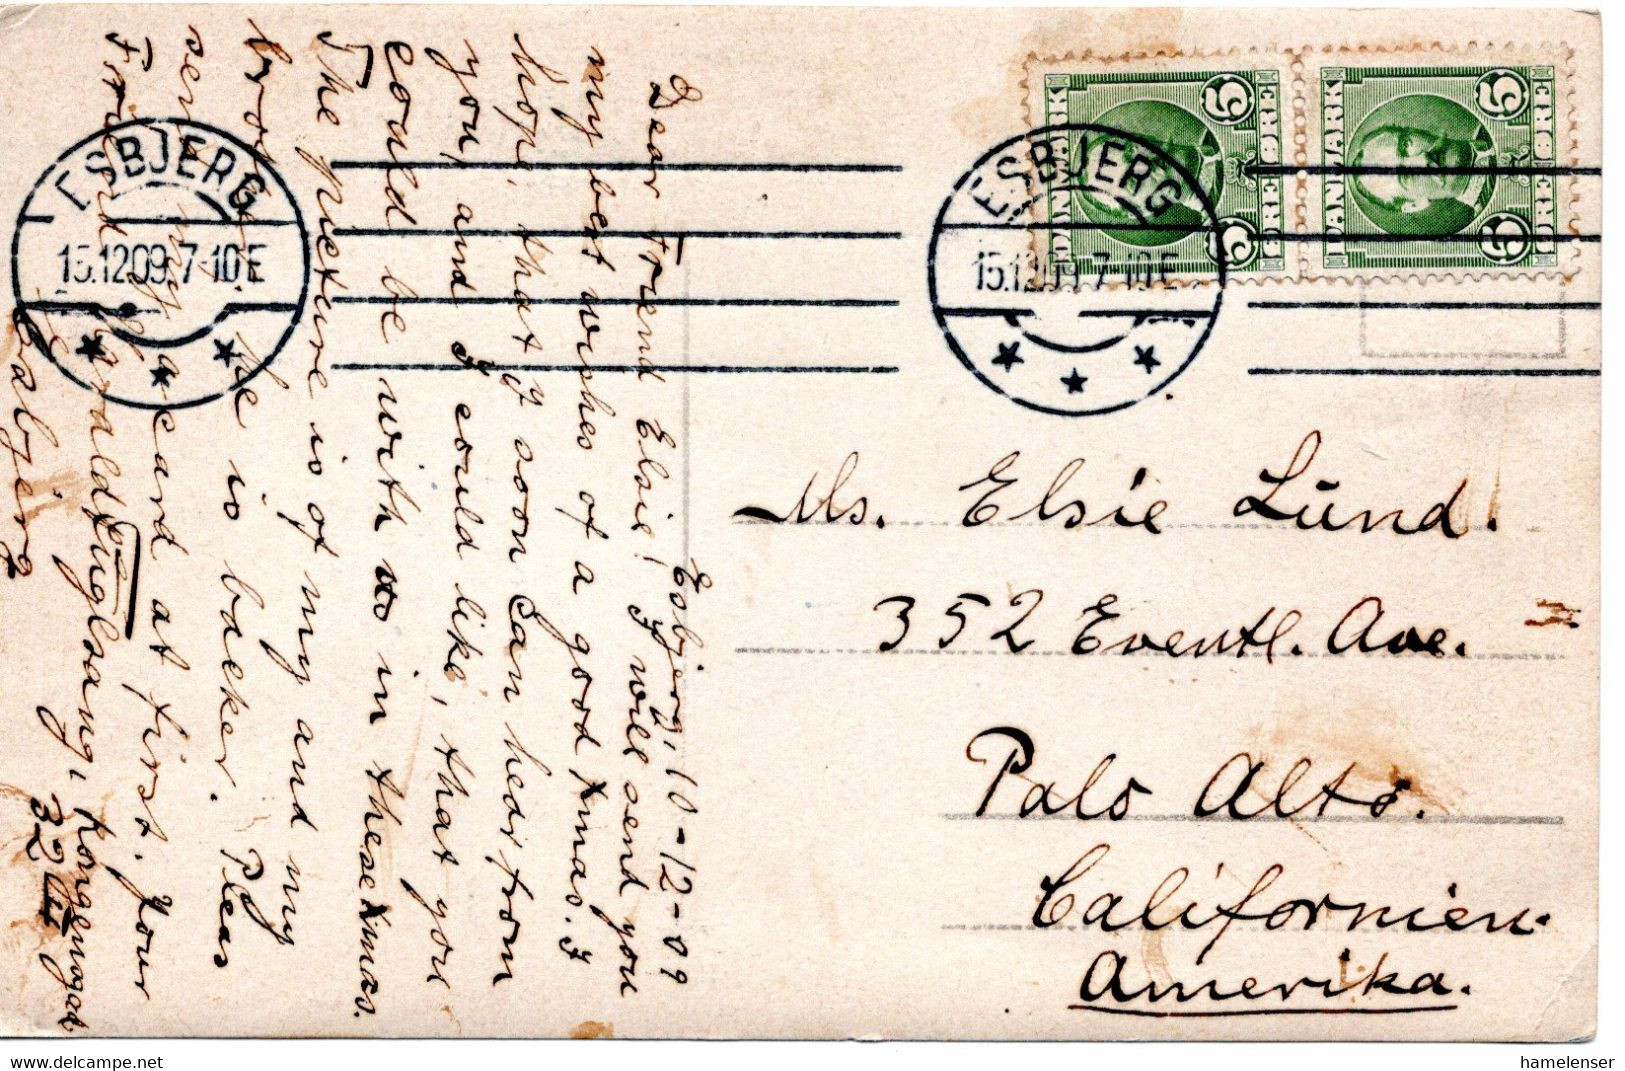 Esbjerg, 10-12-09
Dear Friend Elsie! I will send you
my best wishes of a good Xmas. I
hope, that y soon can hear from
you, and I could like, that you
could be with us in these Xmas.
The picture is of my and my
he is backer. Pleas
send my a card at first. Your
Friend Harald Fuglsang,
Kongensgad.
32
ESBJERG
15.12.09. 7-10 E
ESBJERG
15.12.09. 7-10 E
DANMARK
5 ØRE 5
DANMARK
5 ØRE 5
Ms. Elsie Lund.
352 Eventl. Ave.
Palo Alto.
Californien.
Amerika.
www.delcampe.net
hamelenser